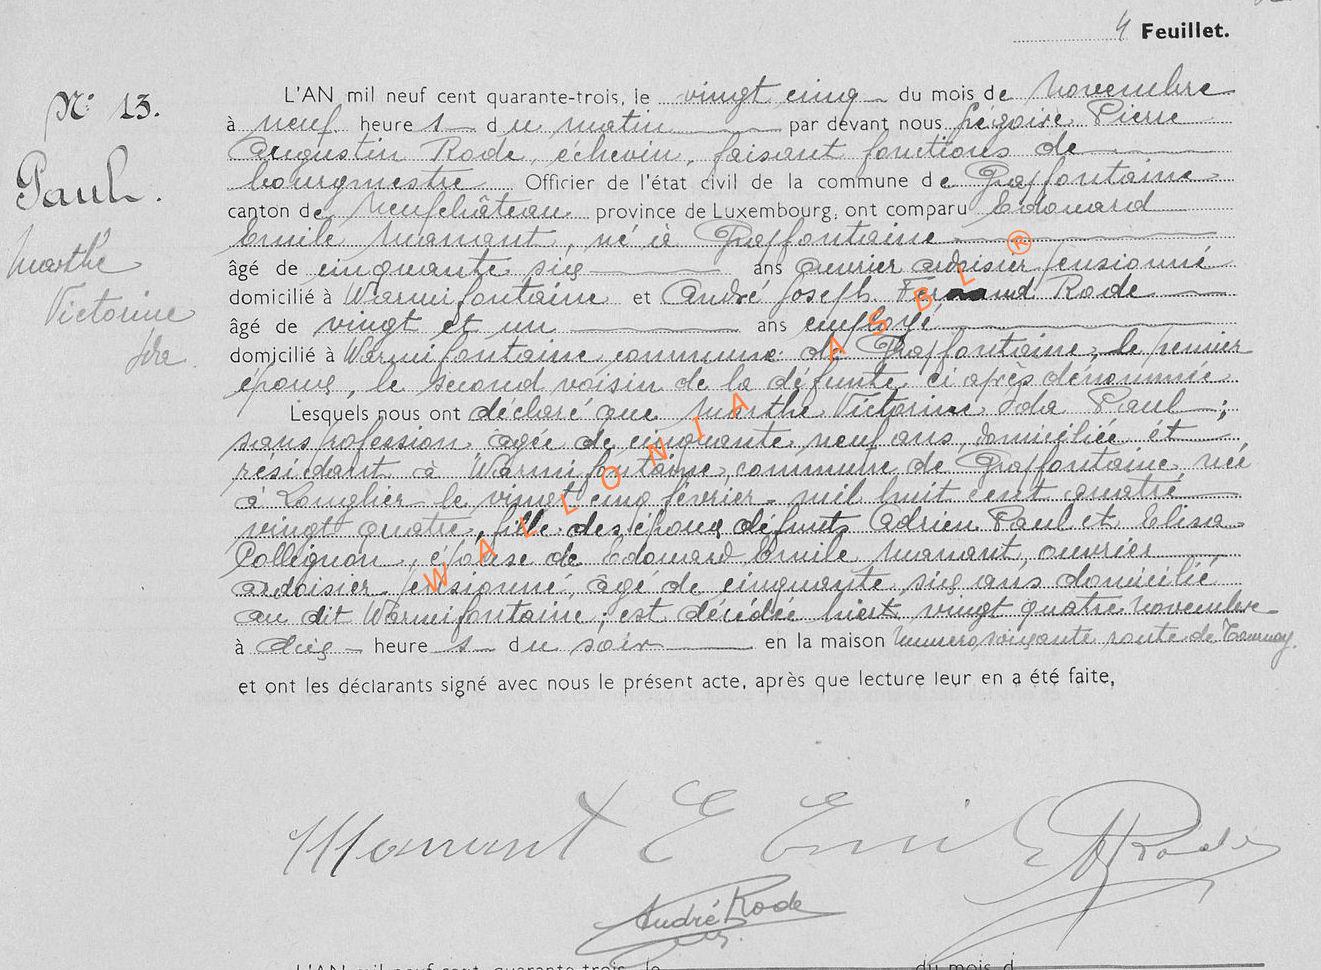 4 Feuillet.
N° 13.
Paul.
Marthe
Victorine
Ida.
L'AN mil neuf cent quarante-trois, le vingt cinq du mois de novembre
à neuf heure s du matin par devant nous Grégoire Pierre
Augustin Rode, échevin, faisant fonctions de
bourgmestre Officier de l'état civil de la commune de Grapfontaine
canton de Neufchâteau province de Luxembourg, ont comparu Edouard
Emile Mamant, né à Grapfontaine
âgé de cinquante six ans ouvrier ardoisier pensionné
domicilié à Warmifontaine et André Joseph Fernand Rode
âgé de vingt et un ans employé
domicilié à Warmifontaine commune de Grapfontaine, le premier
époux, le second voisin de la défunte ci après dénommée
Lesquels nous ont déclaré que Marthe Victorine Ida Paul ;
sans profession, âgée de cinquante neuf ans, domiciliée et
résidant à Warmifontaine, commune de Grapfontaine, née
à Longlier le vingt cinq février mil huit cent quatre
vingt quatre, fille des époux défunts Adrien Paul et Elisa
Collignon, épouse de Edouard Emile Mamant, ouvrier
ardoisier pensionné, âgé de cinquante six ans domicilié
au dit Warmifontaine ; est décédée hier vingt quatre novembre
à dix heure s du soir en la maison numéro soixante route de Tournay.
et ont les déclarants signé avec nous le présent acte, après que lecture leur en a été faite,
Mamant E Emile
A Rode
André Rode
L'AN mil neuf cent quarante-trois, le du mois d
WALLONIA ASBL ®